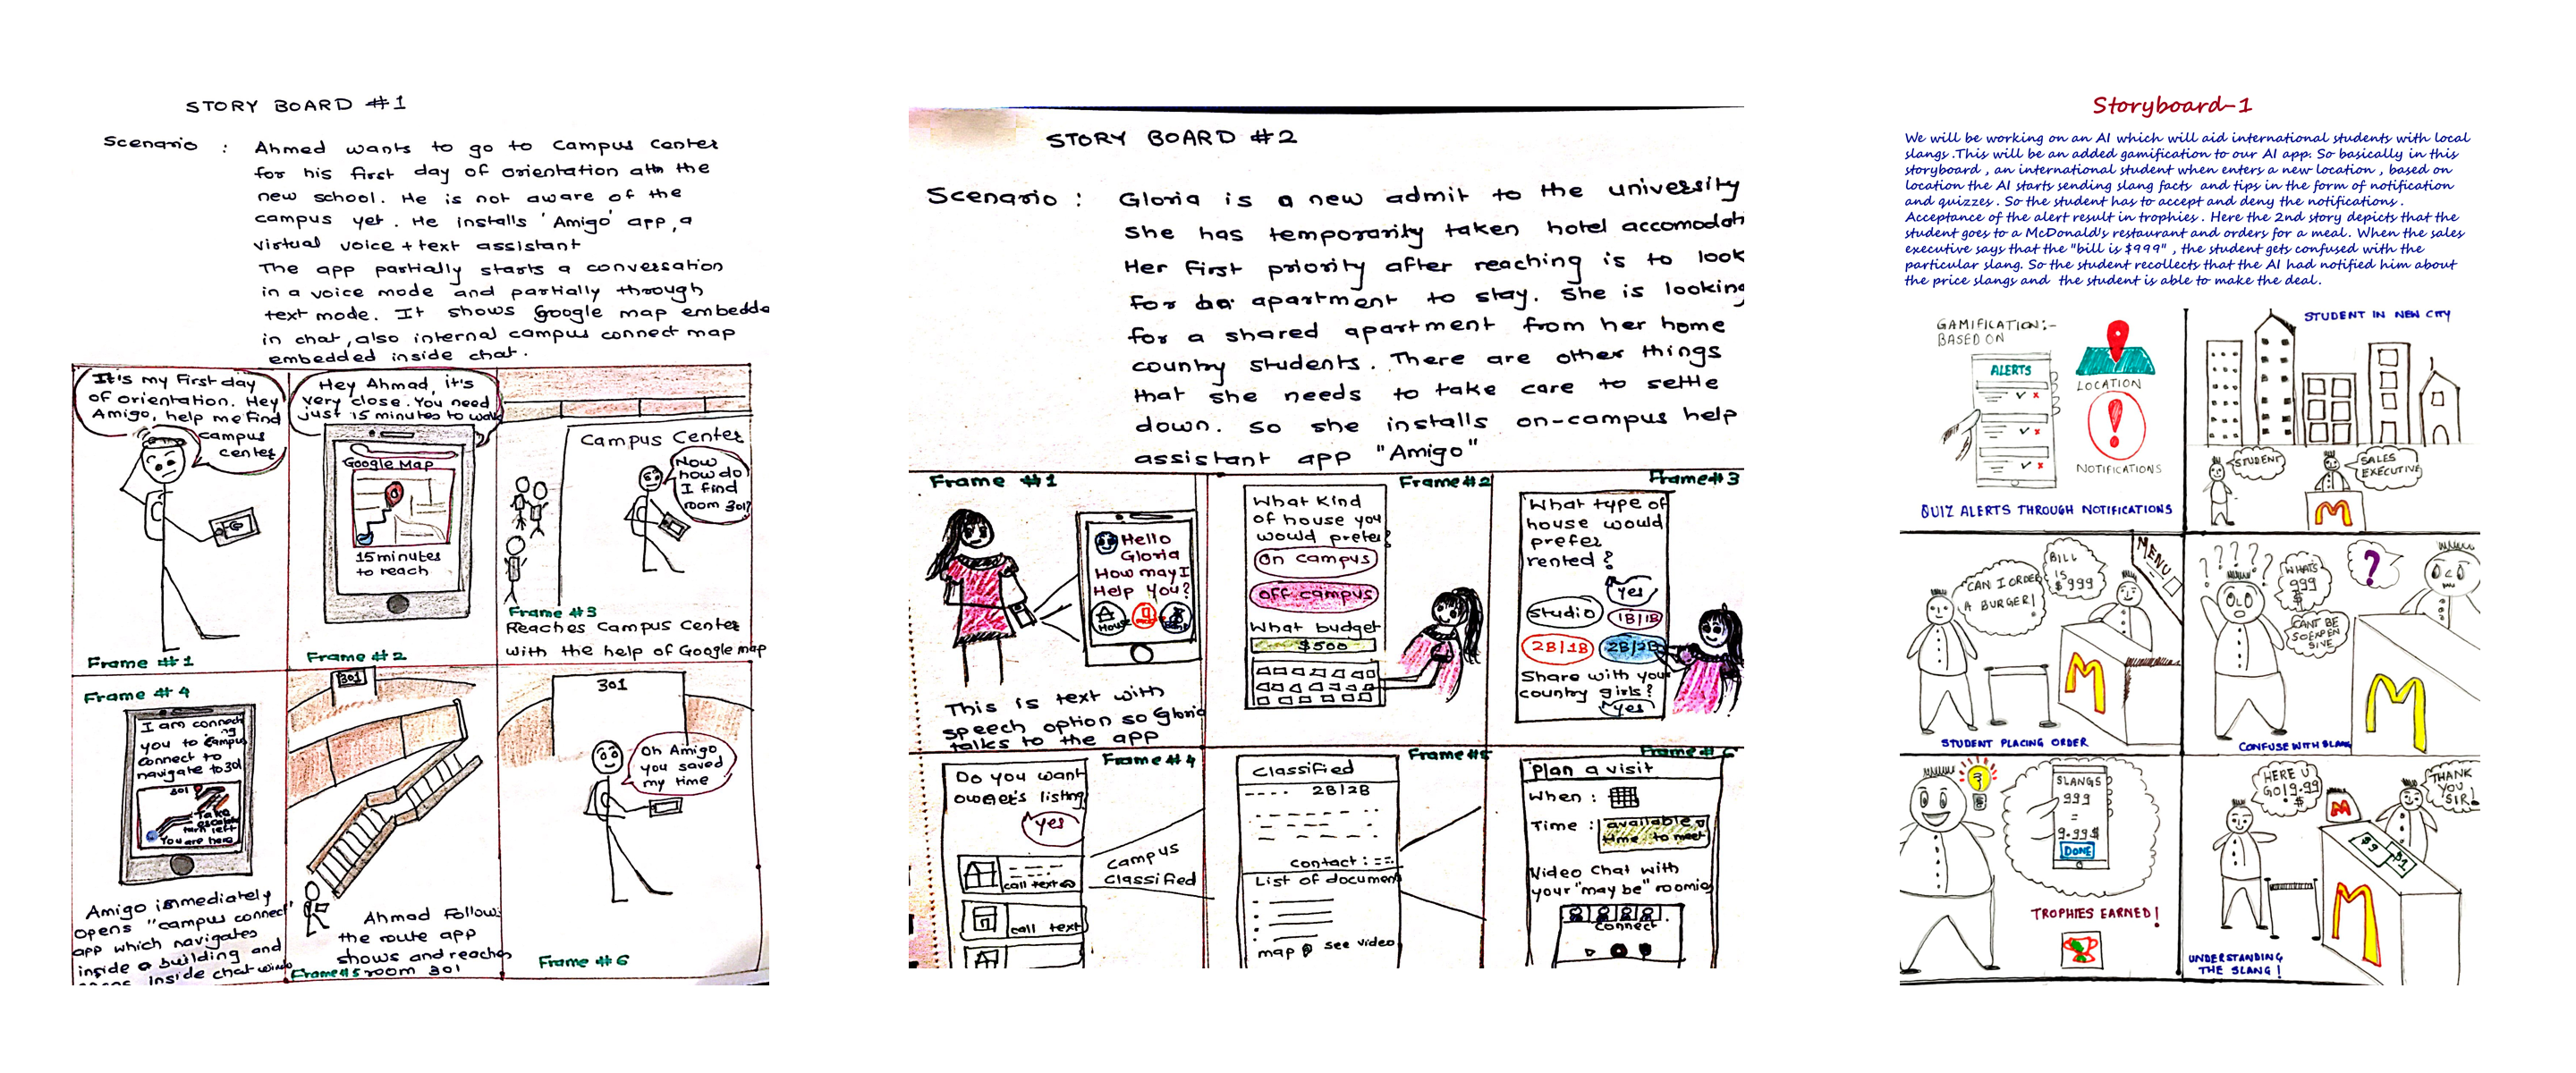 STORY BOARD #1
Scenario : Ahmed wants to go to Campus Center
for his first day of orientation at the
new school. He is not aware of the
campus yet. He installs 'Amigo' app, a
virtual voice + text assistant
The app partially starts a conversation
in a voice mode and partially through
text mode. It shows Google map embedde
in chat, also internal campus connect map
embedded inside chat.
It's my First day
of orientation. Hey
Amigo, help me find
campus
center
Frame #1
Hey Ahmad, it's
very close. You need
just 15 minutes to walk
Google Map
15 minutes
to reach
Frame #2
Campus Center
Now
how do
I find
room 301?
Frame #3
Reaches Campus Center
with the help of Google map
Frame #4
I am connect
ing
you to campus
connect to
navigate to 301
301
Take
escalator
turn left
You are here
Amigo immediately
opens "campus connect"
app which navigates
inside a building and
inside chat window
301
Ahmad Follow
the route app
shows and reaches
Frame #5 room 301
301
Oh Amigo
you saved
my time
Frame #6
STORY BOARD #2
Scenario : Gloria is a new admit to the university
She has temporarity taken hotel accomodati
Her first priority after reaching is to look
for apartment to stay. She is looking
for a shared apartment from her home
country students. There are other things
that she needs to take care to settle
down. So she installs on-campus help
assistant app "Amigo"
Frame #1
Hello
Gloria
How may I
Help You?
House
This is text with
speech option so Gloria
talks to the app
Frame #2
What kind
of house you
would prefer?
On campus
off campus
What budget
$500
Frame #3
What type of
house would
prefer
rented?
Yes
Studio
1B|1B
2B|1B
2B|2B
Share with your
country girls?
Yes
Frame #4
Do you want
owner's listing
Yes
call text
call text
campus
classified
Frame #5
Classified
2B|2B
contact :
List of document
map see video
Frame #6
Plan a visit
When :
Time : available
time to meet
Video Chat with
your "may be" roomie
connect
Storyboard-1
We will be working on an AI which will aid international students with local
slangs .This will be an added gamification to our AI app. So basically in this
storyboard , an international student when enters a new location , based on
location the AI starts sending slang facts and tips in the form of notification
and quizzes . So the student has to accept and deny the notifications .
Acceptance of the alert result in trophies . Here the 2nd story depicts that the
student goes to a McDonald's restaurant and orders for a meal. When the sales
executive says that the "bill is $999" , the student gets confused with the
particular slang. So the student recollects that the AI had notified him about
the price slangs and the student is able to make the deal.
GAMIFICATION:-
BASED ON
ALERTS
LOCATION
NOTIFICATIONS
QUIZ ALERTS THROUGH NOTIFICATIONS
STUDENT IN NEW CITY
STUDENT
SALES
EXECUTIVE
M
CAN I ORDER
A BURGER!
BILL
IS
$999
MENU
M
STUDENT PLACING ORDER
? ? ? ?
WHAT'S
999
$
CANT BE
SO EXPEN
SIVE
?
M
CONFUSE WITH SLANG
SLANGS
999
=
9.99$
DONE
TROPHIES EARNED!
HERE U
GO! 9.99
$
THANK
YOU
SIR!
M
$9
$1
M
UNDERSTANDING
THE SLANG!